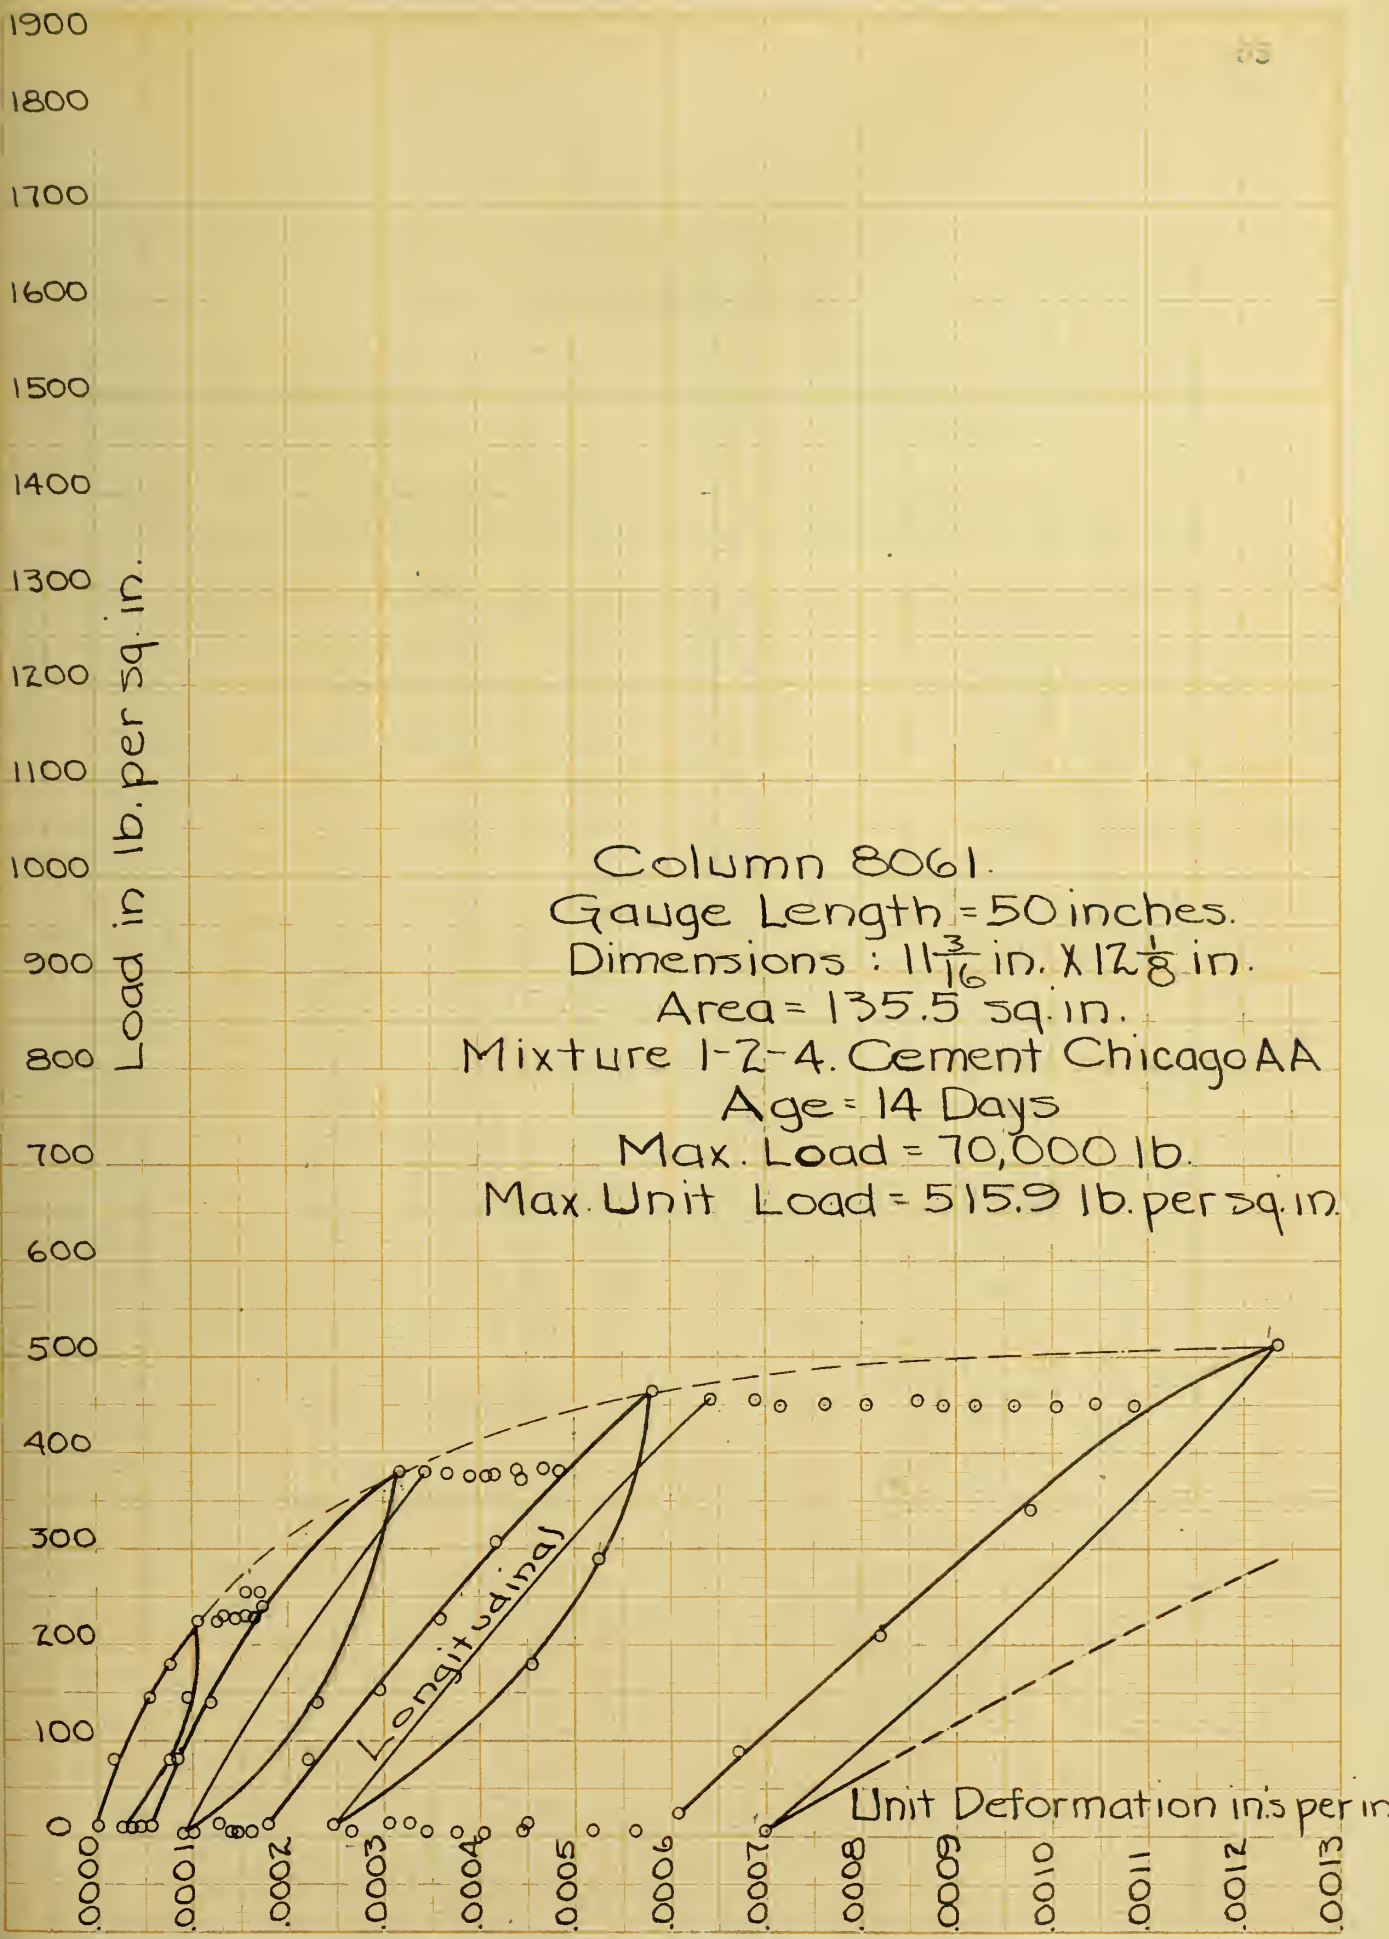 1900
1800
1700
1600
1500
1400
1300
1200
1100
1000
900
800
700
600
500
400
300
200
100
0
Load in lb. per sq. in.
Column 8061.
Gauge Length = 50 inches.
Dimensions : 11 3/16 in. X 12 1/8 in.
Area = 135.5 sq. in.
Mixture 1-2-4. Cement Chicago AA
Age = 14 Days
Max. Load = 70,000 lb.
Max. Unit Load = 515.9 lb. per sq. in.
Longitudinal
Unit Deformation in's per in
.0000
.0001
.0002
.0003
.0004
.0005
.0006
.0007
.0008
.0009
.0010
.0011
.0012
.0013